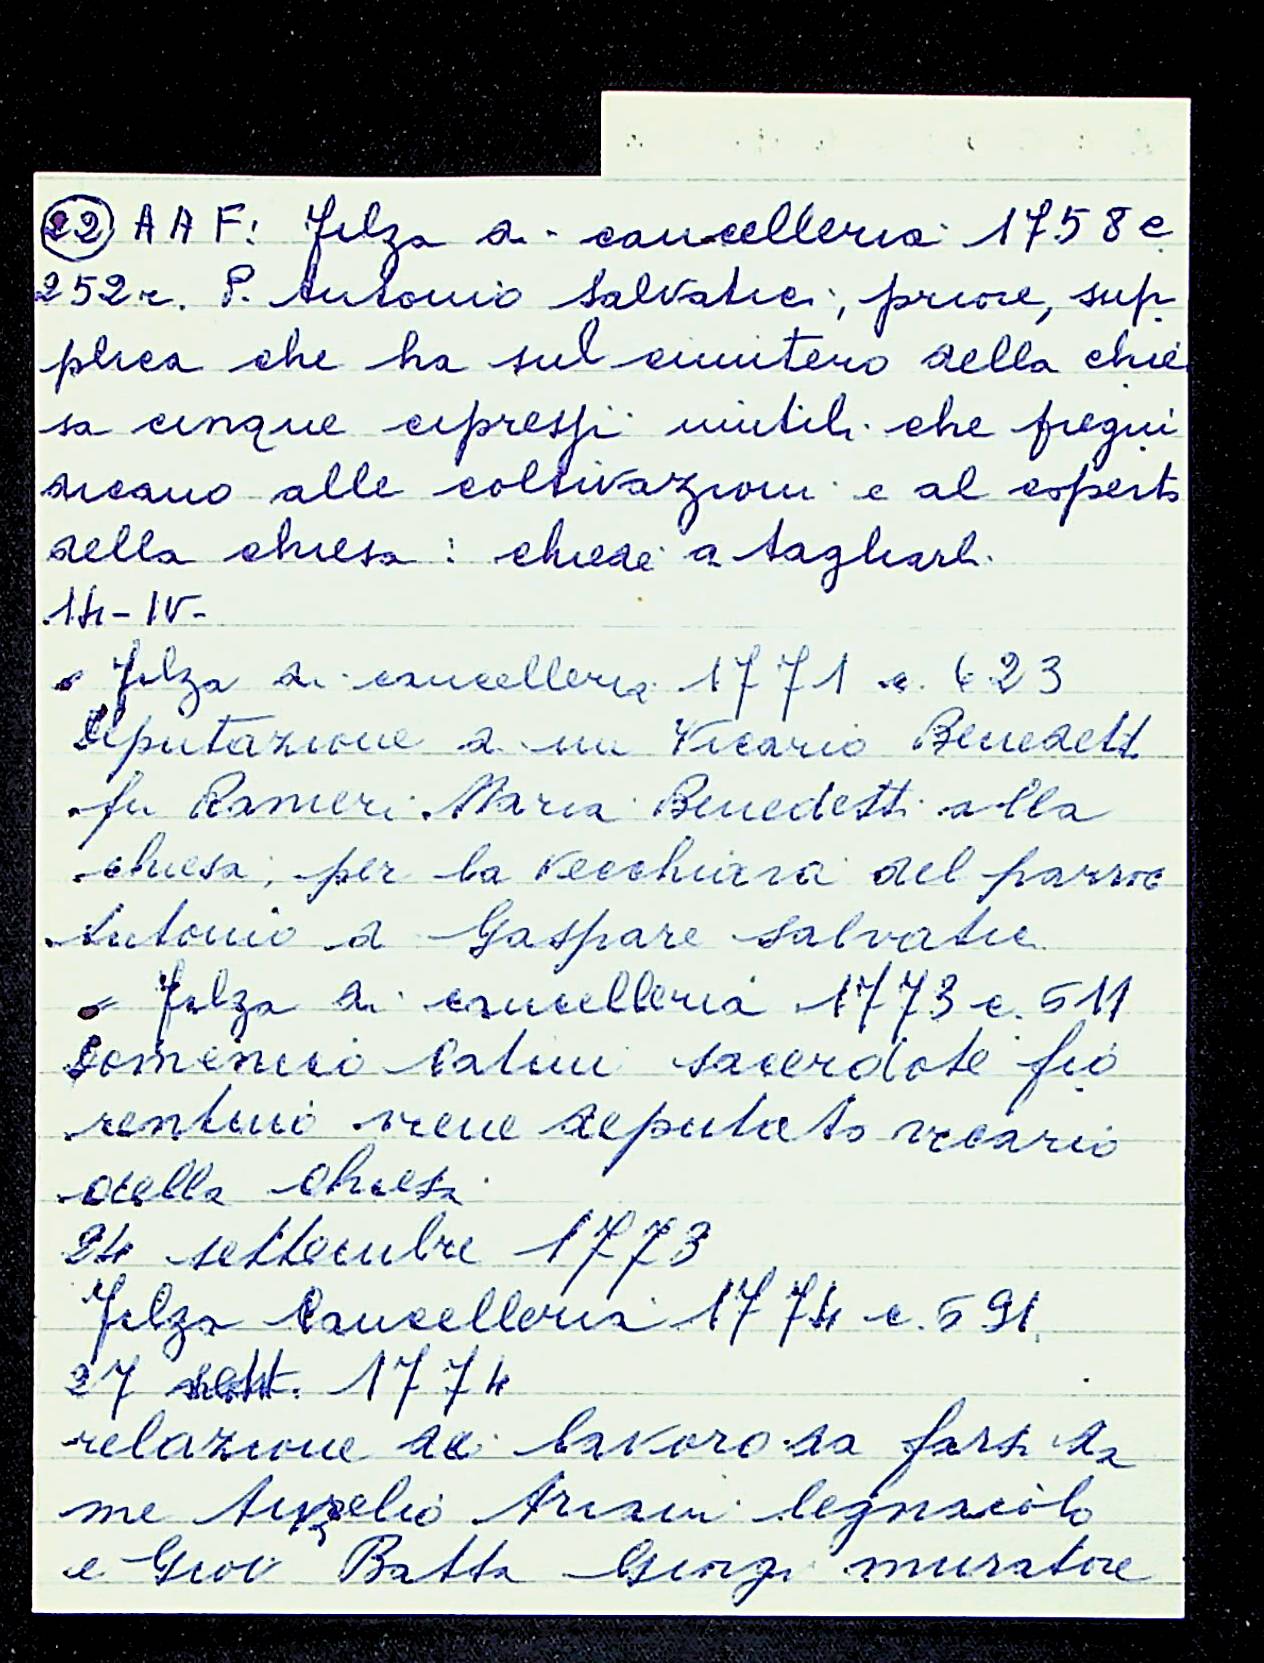 22 A A F: Filza di cancelleria 1758 c
252r. P. Antonio Salvatici, priore, sup
plica che ha sul cimitero della chie
sa cinque cipressi inutili che
dicano alle coltivazioni e al coperto
della chiesa: chiede a tagliarli.
14-IV-
Filza di cancelleria 1771 c. 623
Deputazione di un Vicario Benedett
fu Ranieri Maria Benedetti alla
chiesa, per la vecchiaia del parroc
Antonio d Gaspare Salvatic
Filza di cancelleria 1773 c. 511
Domenico Catini sacerdote fio
rentino viene deputato vicario
della chiesa
24 settembre 1773
Filza Cancelleria 1774 c. 591
27 sett. 1774
relazione de lavoro da farsi da
me Aurelio legnaiolo
e Giov Batta Giorgi muratore